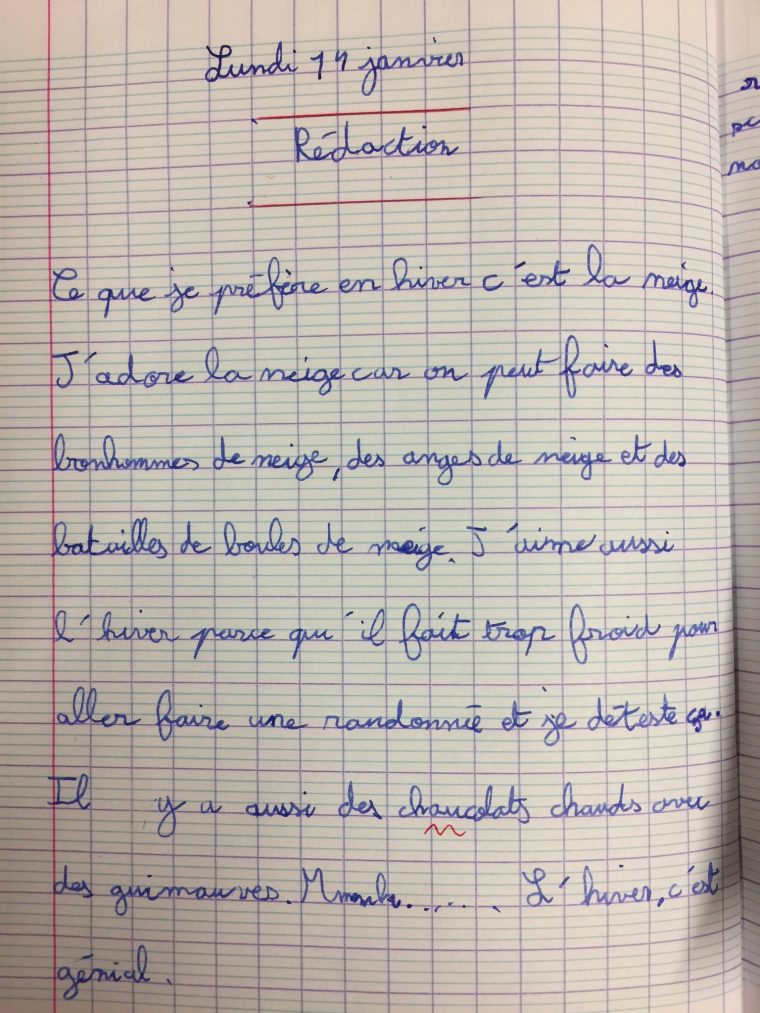 Lundi 14 janvier
Rédaction
Ce que je préfère en hiver c'est la neige.
J'adore la neige car on peut faire des
bonhommes de neige, des anges de neige et des
batailles de boules de neige. J'aime aussi
l'hiver parce qu'il fait trop froid pour
aller faire une randonnée et je déteste ça.
Il y a aussi des chaucolats chauds avec
des guimauves. ....... L'hiver, c'est
génial.